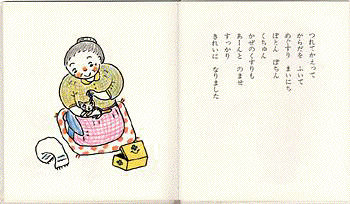 つれてかえって
からだを ふいて
めぐすり まいにち
ぽとん ぽとん
くちゅん
かぜのくすりも
あーんと のませ
すっかり
きれいに なりました